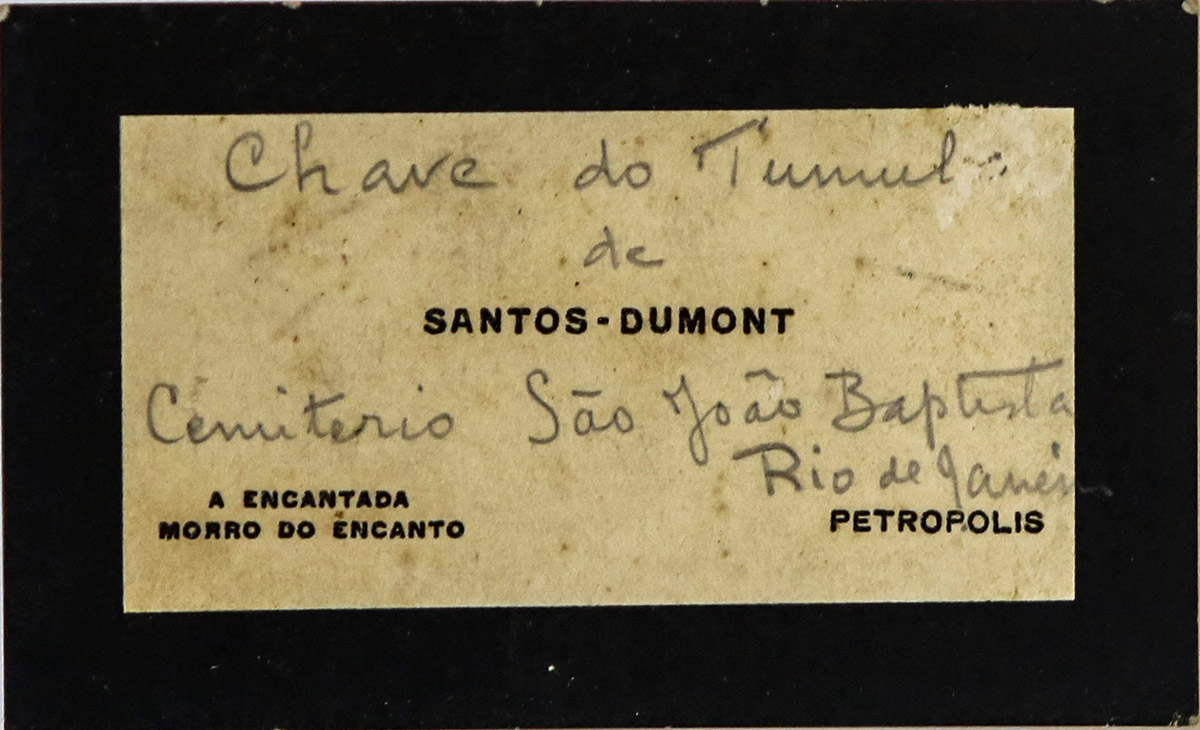 Chave do Tumulo
de
SANTOS-DUMONT
Cemiterio São João Baptista
Rio de Janeiro
A ENCANTADA
MORRO DO ENCANTO
PETROPOLIS